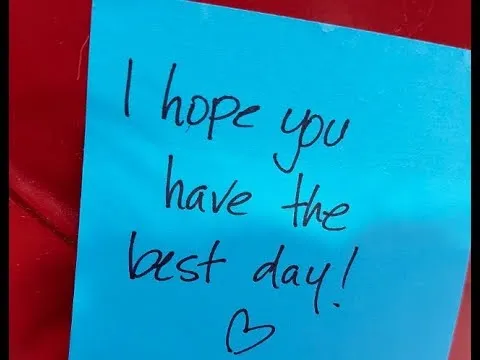 I hope you
have the
best day!